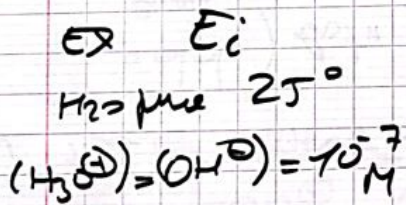 EX Ei
H2O pure 25°
(H3O⊕)=(OH⊖)=10⁻⁷ M